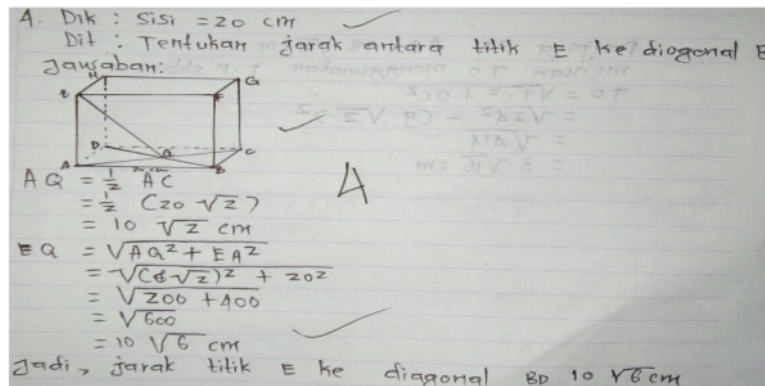 4. Dik : Sisi = 20 cm
Dit : Tentukan jarak antara titik E ke diogonal B
Jawaban:
H G
E F
D C
Q
A 20 cm B
AQ = 1/2 AC
= 1/2 (20 √2)
= 10 √2 cm
4
EQ = √AQ² + EA²
= √(√2)² + 20²
= √200 + 400
= √600
= 10 √6 cm
Jadi, jarak titik E ke diagonal BD 10 √6 cm